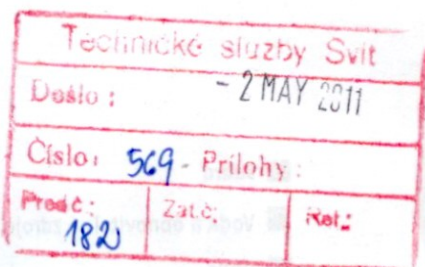 Technické služby Svit
Došlo : - 2 MAY 2011
Číslo: 569 - Prílohy :
Predč : Zat.č. Ref.:
182